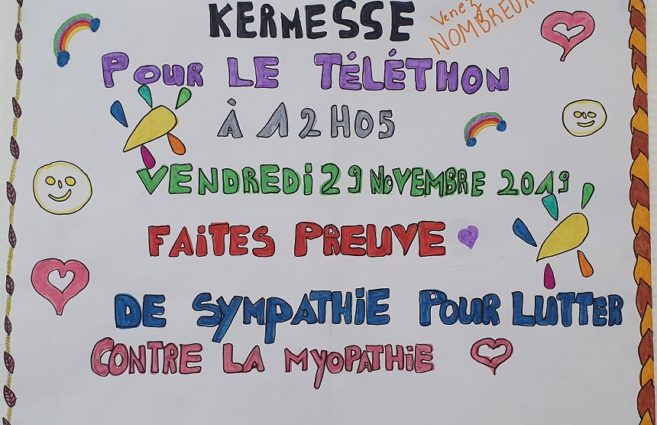 KERMESSE
Venez NOMBREUX
POUR LE TÉLÉTHON
À 12H05
VENDREDI 29 NOVEMBRE 2019
FAITES PREUVE
DE SYMPATHIE POUR LUTTER
CONTRE LA MYOPATHIE